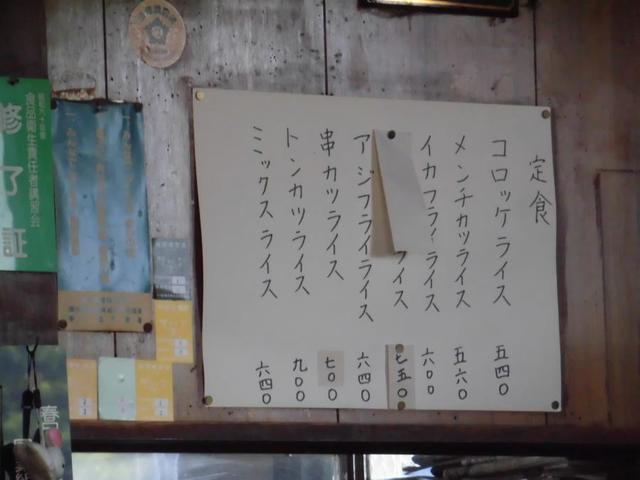 定食
コロッケライス 五四〇
メンチカツライス 五六〇
イカフライライス 六〇〇
ライス 七五〇
アジフライライス 六四〇
串カツライス 七〇〇
トンカツライス 九〇〇
ミックスライス 六四〇
食品衛生責任者講習会
修了証
春